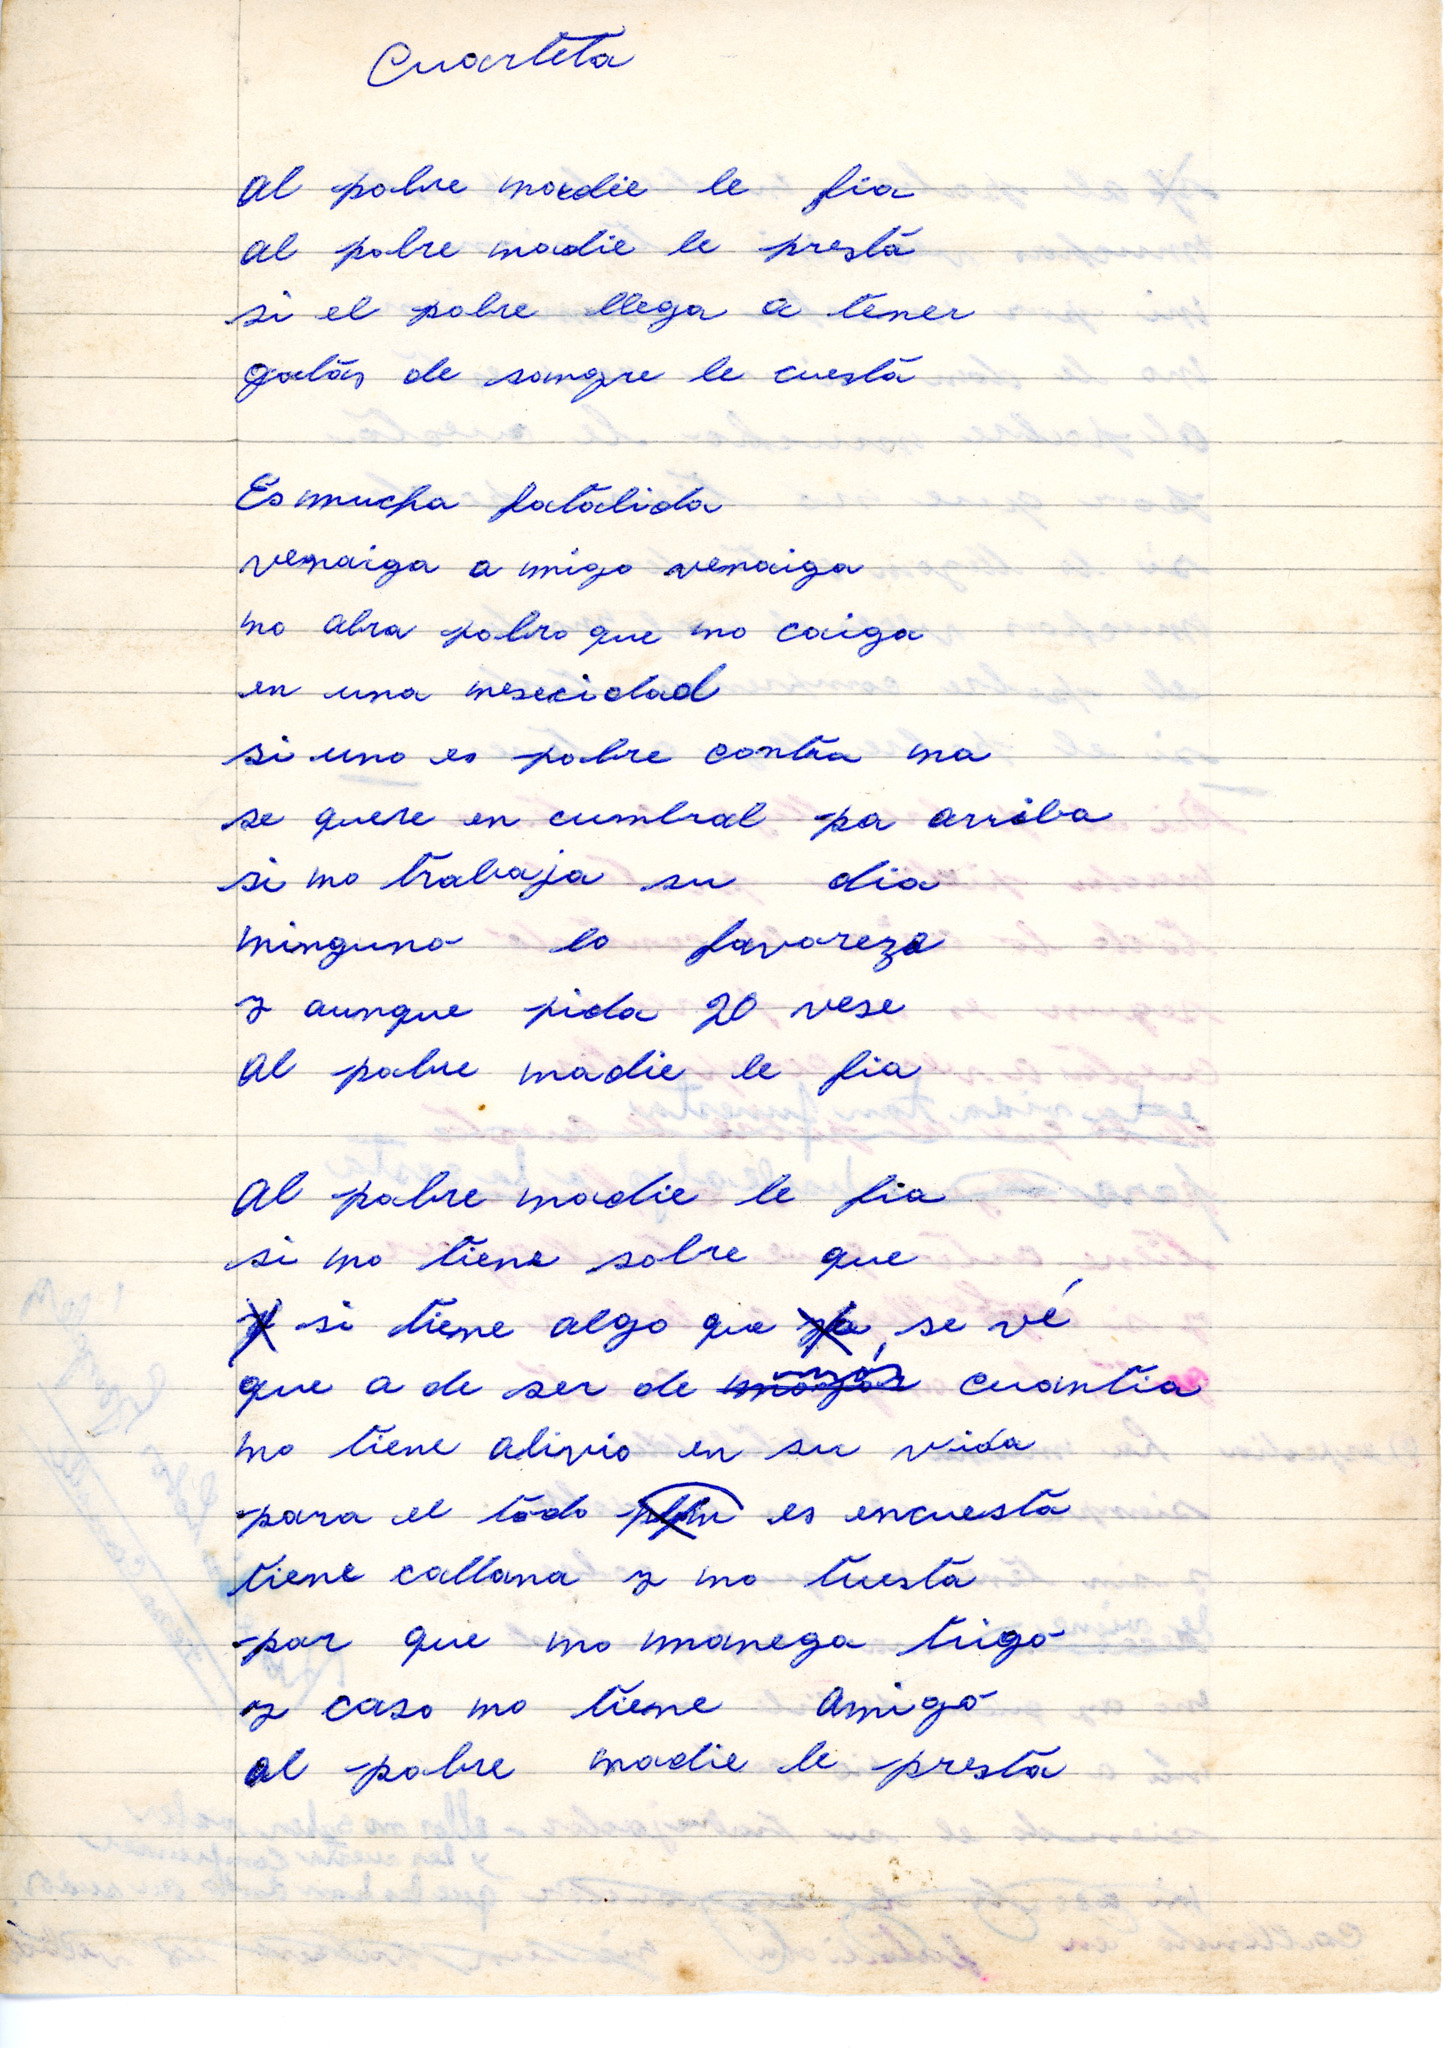 Cuarteta
al pobre nadie le fia
al pobre nadie le presta
si el pobre llega a tener
gotas de sangre le cuesta
Es mucha fatalida
venaiga a migo venaiga
no abra pobro que no caiga
en una nesecidad
si uno es pobre contra ma
se quere en cumbral pa arriba
si no trabaja su dia
ninguno lo favoreze
y aunque pida 20 vese
al pobre nadie le fia
al pobre nadie le fia
si no tiene sobre que
si tiene algo que se vé
que a de ser de más cuantia
no tiene alivio en su vida
para el todo es encuesta
tiene callana y no tuesta
por que no manega trigo
y caso no tiene amigo
al pobre nadie le presta